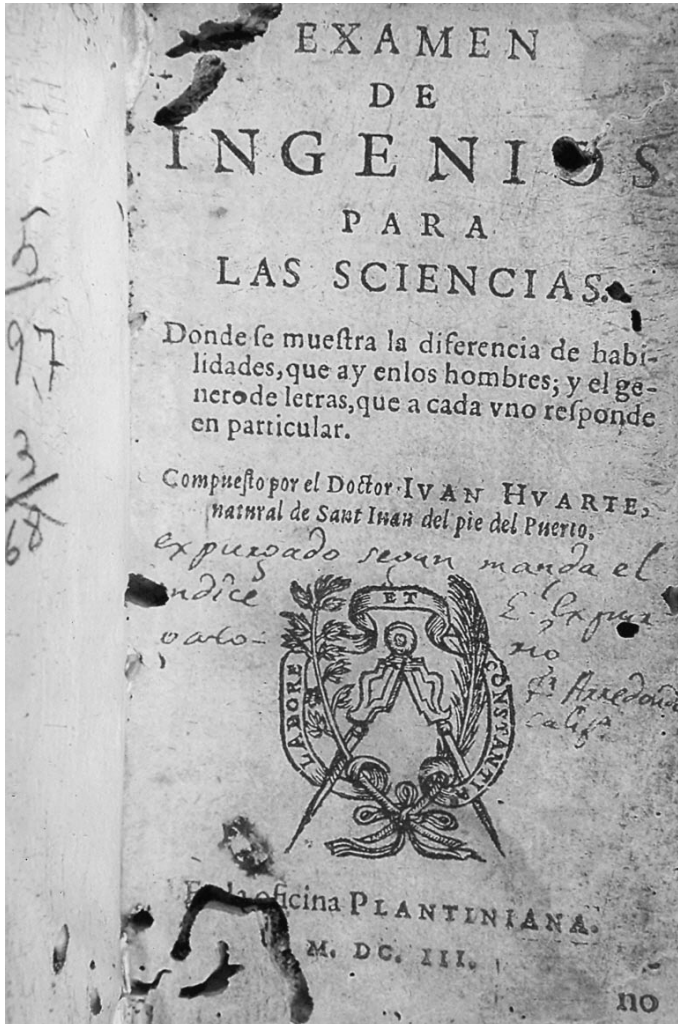 EXAMEN
DE
INGENIOS
PARA
LAS SCIENCIAS.
Donde se muestra la diferencia de habi-
lidades, que ay enlos hombres; y el ge-
nero de letras, que a cada vno responde
en particular.
Compuesto por el Doctor IVAN HVARTE,
natural de Sant Iuan del pie del Puerto.
expurgado segun manda el
ndice
E. Expur-
rio
LABORE ET CONSTANTIA
En la oficina PLANTINIANA.
M. DC. III.
110
5/
97
3/
68